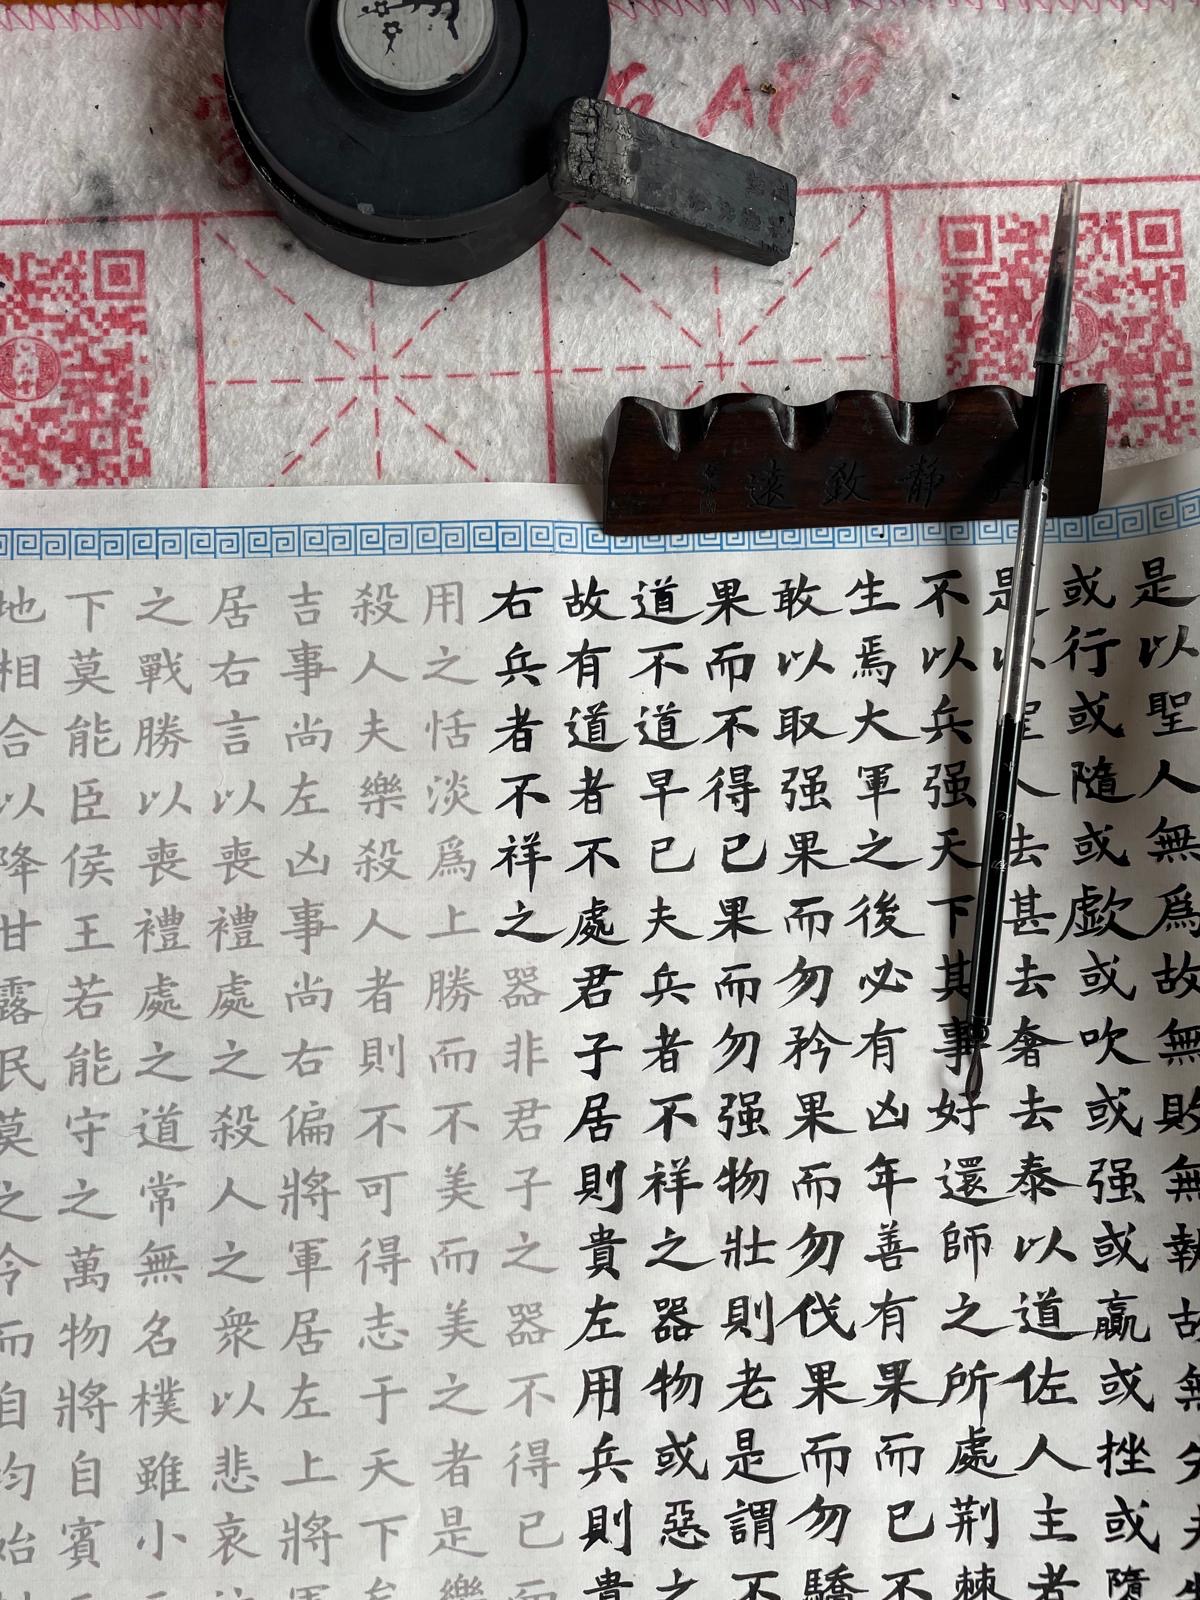 APP
靜致遠
是以聖人無爲故無敗無執故無失夫
或行或隨或歔或吹或强或贏或挫或隳
是以聖人去甚去奢去泰以道佐人主者
不以兵强天下其事好還師之所處荆棘
生焉大軍之後必有凶年善有果而已不
敢以取强果而勿矜果而勿伐果而勿驕
果而不得已果而勿强物壯則老是謂不
道不道早已夫兵者不祥之器物或惡之
故有道者不處君子居則貴左用兵則貴
右兵者不祥之器非君子之器不得已而
用之恬淡爲上勝而不美而美之者是樂
殺人夫樂殺人者則不可得志于天下矣
吉事尚左凶事尚右偏將軍居左上將軍
居右言以喪禮處之殺人之衆以悲哀泣
之戰勝以喪禮處之道常無名樸雖小天
下莫能臣侯王若能守之萬物將自賓天
地相合以降甘露民莫之令而自均始